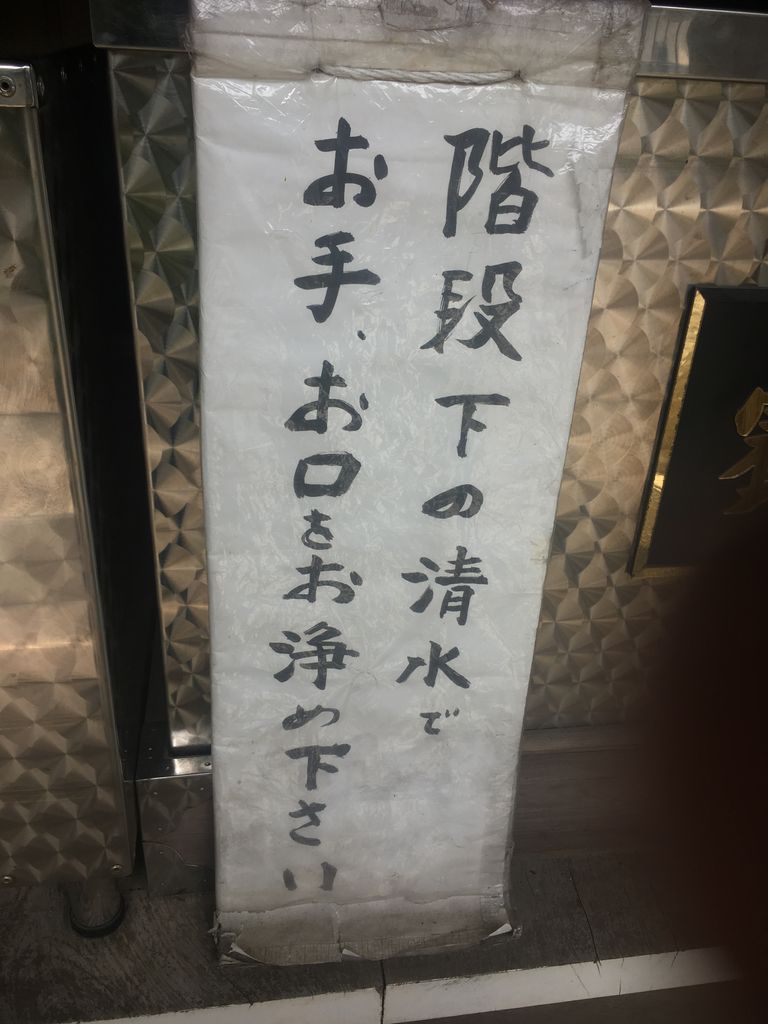 階段下の清水で
お手、お口をお浄め下さい